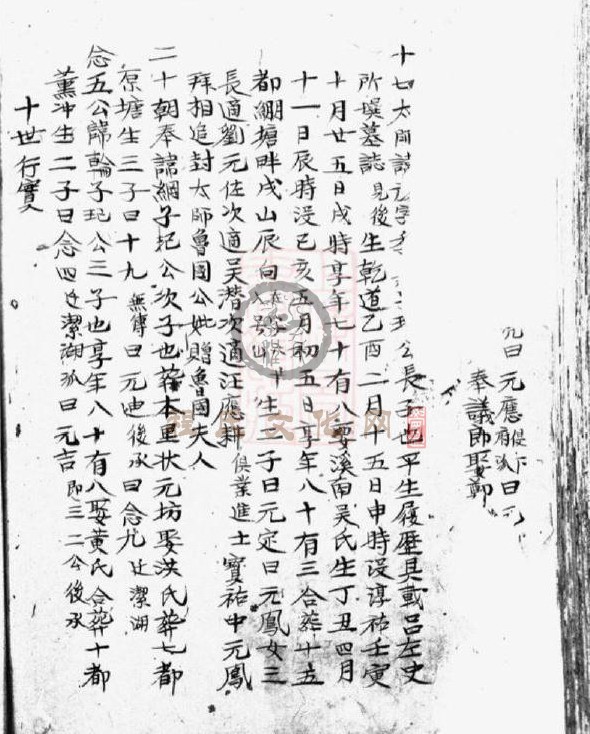 九曰元應有派曰元
奉議郎娶鄭
十七太師諱元字公長子也平生履歷具載呂左史
所撰墓誌見後生乾道乙酉二月十五日申時没淳祐壬寅
十月廿五日戌時享年七十有八娶溪南吳氏生丁丑四月
十一日辰時没己亥五月初五日享年八十有三合葬十五
都綢塘畔戌山辰向生二子曰元定曰元鳳女三
長適劉元佐次適吳潛次適汪應耕俱業進士寶祐中元鳳
拜相追封太師魯國公妣贈魯國夫人
二十朝奉諱綱子玘公次子也葬本里狀元坊娶洪氏葬七都
原塘生三子曰十九無傳曰元迪後承曰念九迁潔湖
念五公諱輪子玘公三子也享年八十有八娶黃氏合葬十都
薰冲生二子曰念四迁潔湖派曰元吉即三二公後承
十世行實
程氏文化网